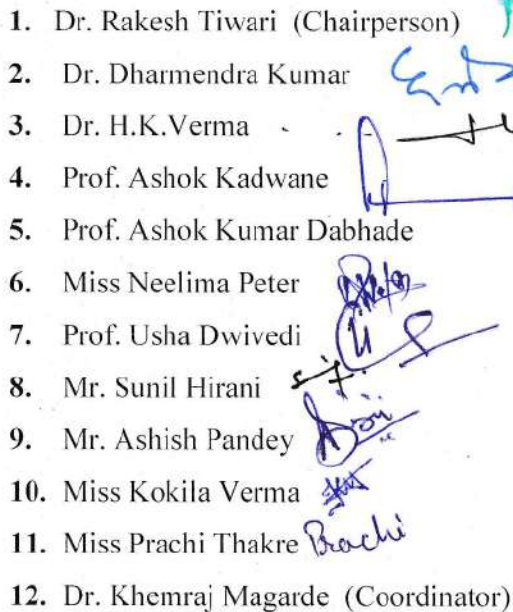 1. Dr. Rakesh Tiwari (Chairperson)
2. Dr. Dharmendra Kumar
3. Dr. H.K.Verma
4. Prof. Ashok Kadwane
5. Prof. Ashok Kumar Dabhade
6. Miss Neelima Peter
7. Prof. Usha Dwivedi
8. Mr. Sunil Hirani
9. Mr. Ashish Pandey
10. Miss Kokila Verma
11. Miss Prachi Thakre Prachi
12. Dr. Khemraj Magarde (Coordinator)